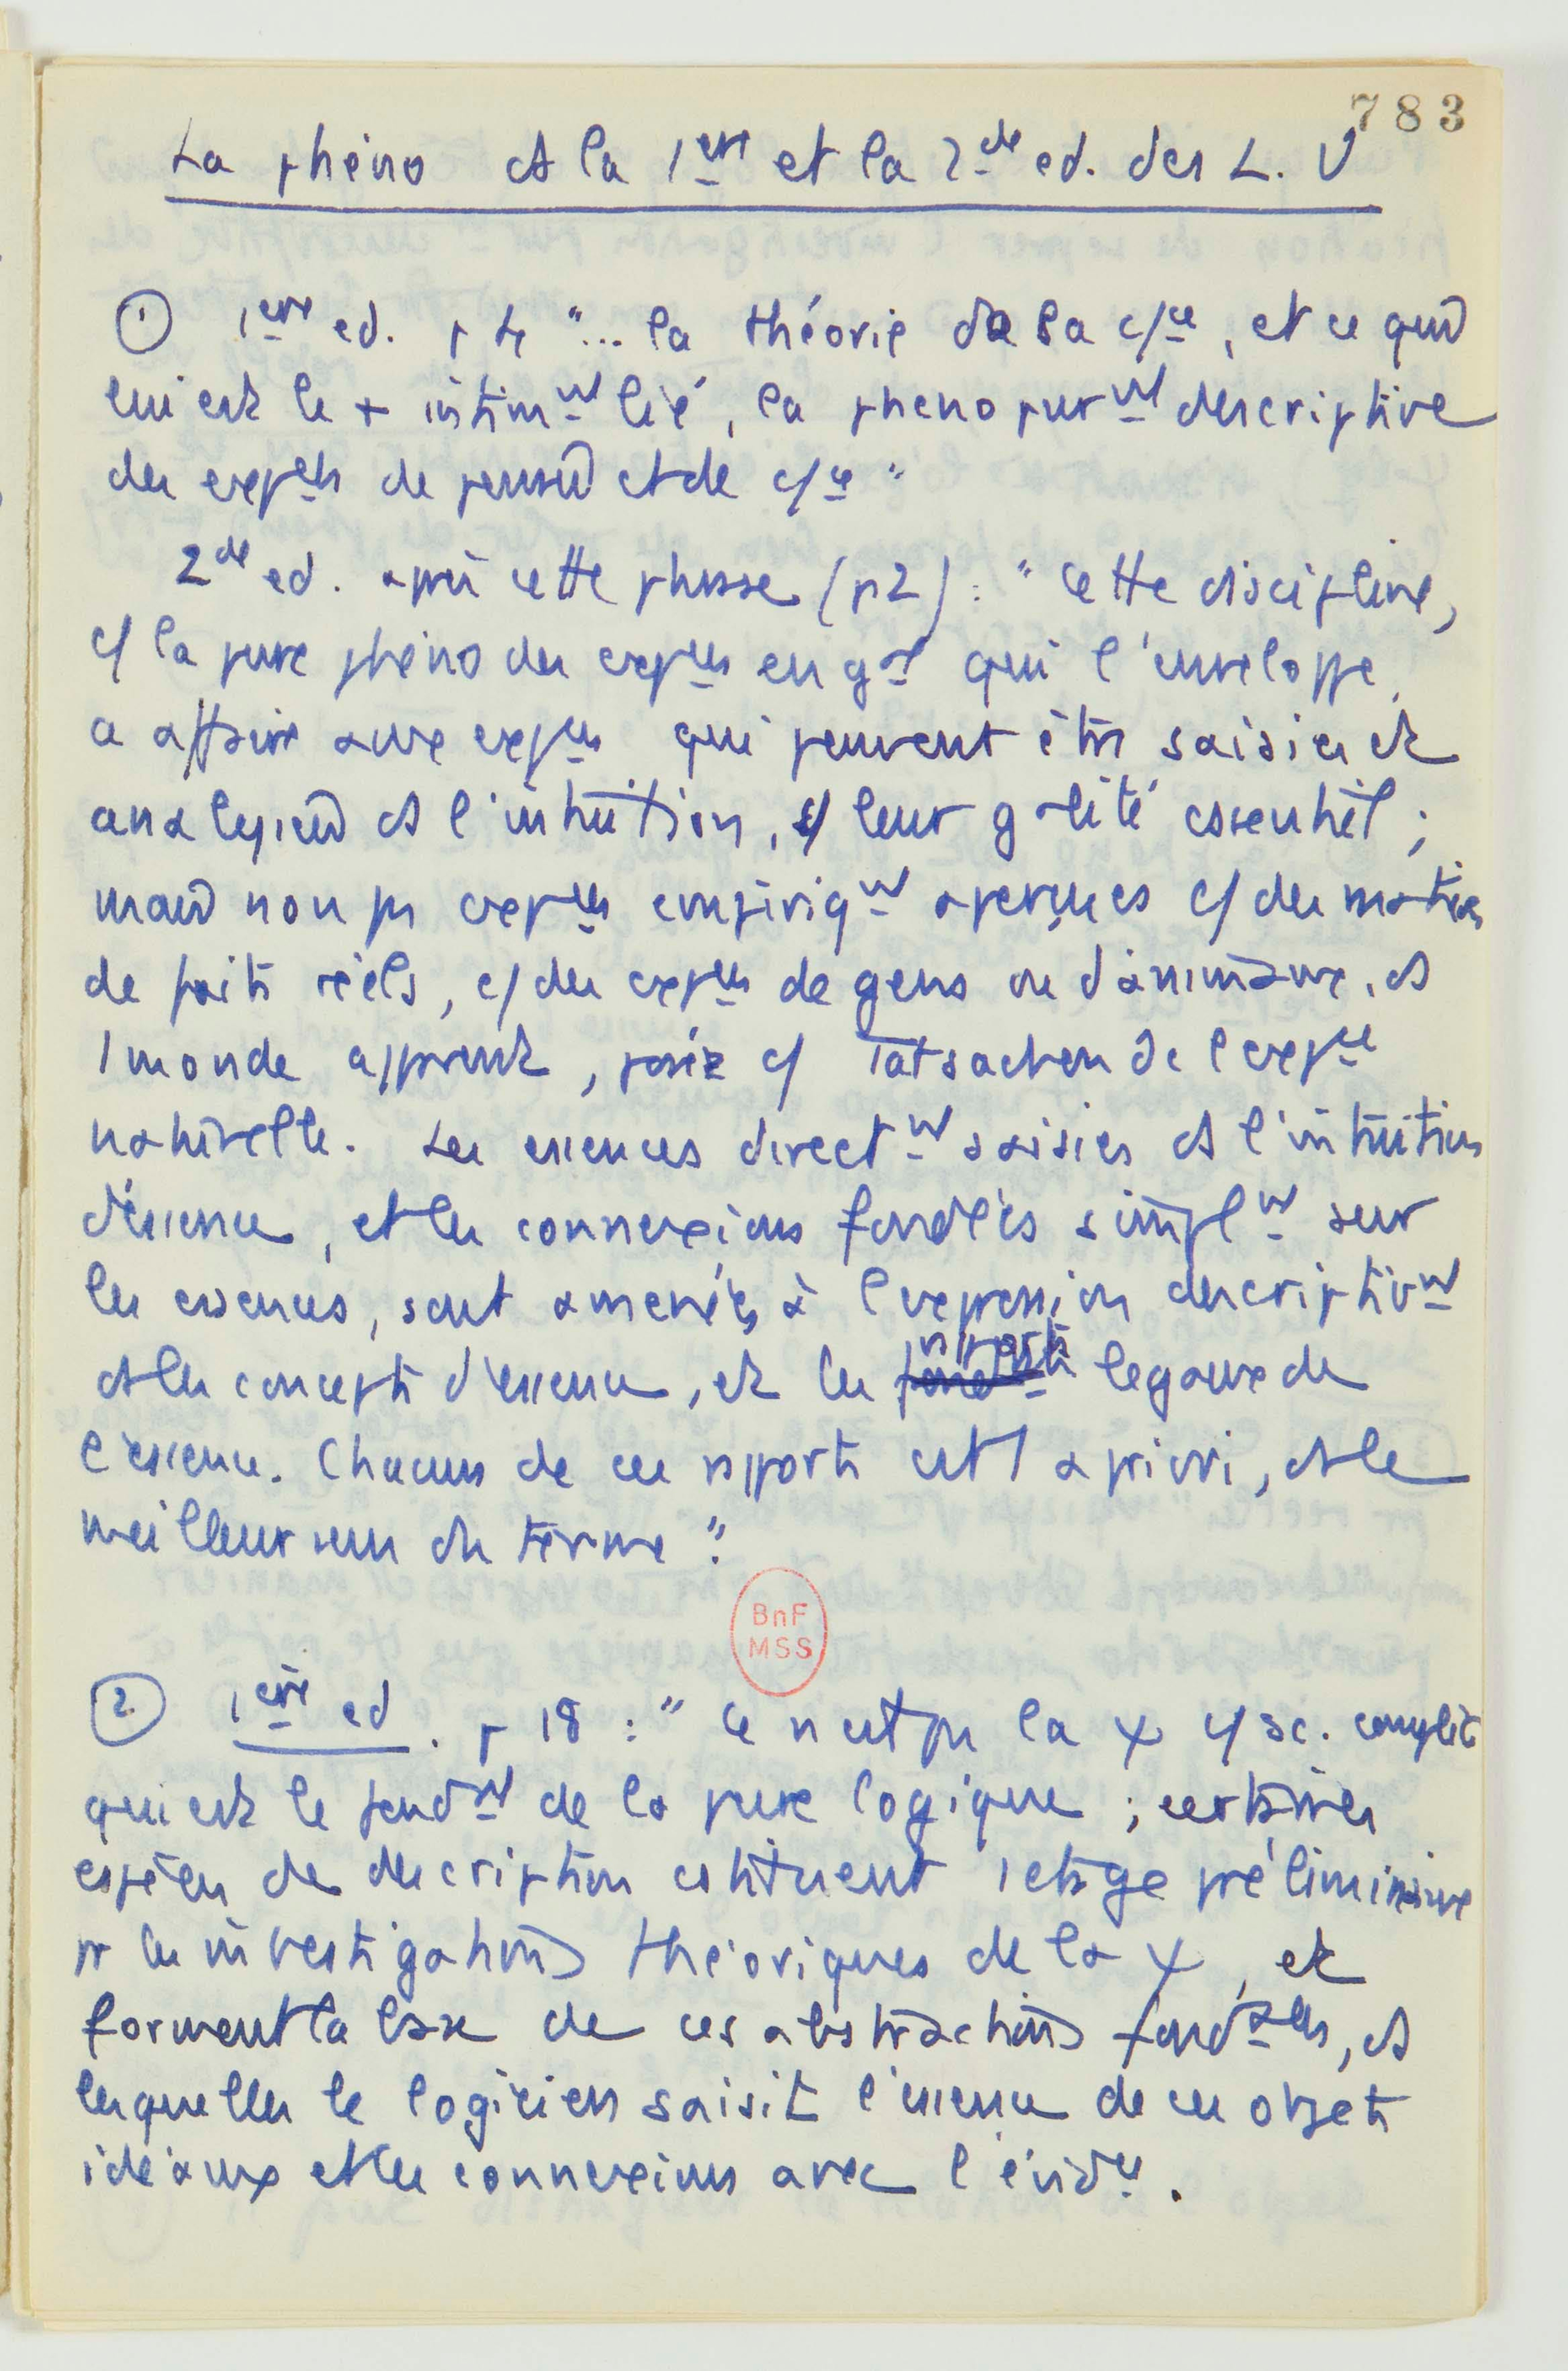 783
La phéno ds la 1ère et la 2de ed. des L. U
① 1ère ed. p 4 "... la théorie de la c/ce, et ce qui
lui est le + intimt lié, la phéno purt descriptive
des expces de pensée et de c/ce"
2de ed. après cette phrase (p2) : "Cette discipline,
c/ la pure phéno des expces en gal qui l'enveloppe,
a affaire aux expces qui peuvent être saisies et
analysées ds l'intuition, c/ leur galité essentiel ;
mais non ps expces empiriqt aperçues c/ des matières
de faits réels, c/ des expces de gens ou d'animaux, ds
1 monde apprent, posée c/ Tatsachen de l'expce
naturelle. Les essences directt saisies ds l'intuition
d'essence, et les connexions fondées simplt sur
les essences, sont amenées à l'expression descriptivt
ds les concepts d'essence, et les rapports légaux de
l'essence. Chacun de ces rapports est 1 a priori, ds le
meilleur sens du terme".
BnF
MSS
② 1ère ed. p 18 : "Ce n'est ps la χ c/ sc. complète
qui est le fondt de la pure logique ; certaines
espèces de description cstituent 1 etage préliminaire
pr les investigations théoriques de la χ, et
forment la base de ces abstractions fondales, ds
lesquelles le logicien saisit l'essence de ces objets
idéaux et les connexions avec l'évidce.